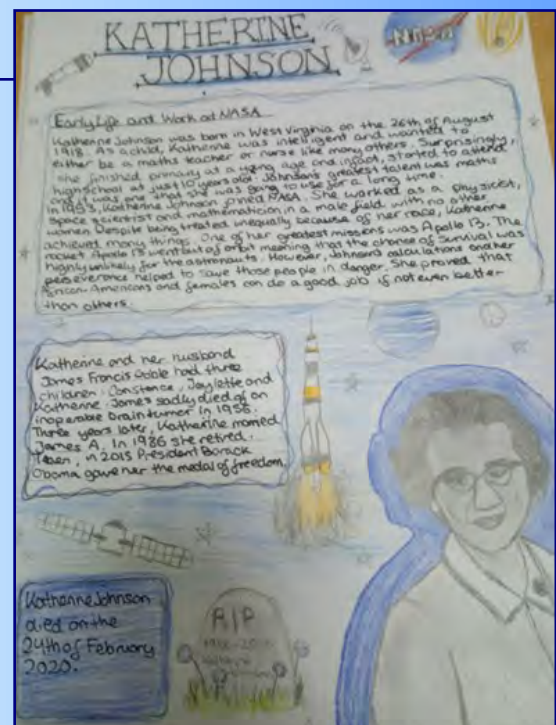 KATHERINE
JOHNSON
NASA
Early Life and Work at NASA
Katherine Johnson was born in West Virginia on the 26th of August
1918. As a child, Katherine was intelligent and wanted to
either be a maths teacher or nurse like many others. Surprisingly,
she finished primary at a young age and infact, started to attend
highschool at just 10 years old. Johnson's greatest talent was maths
and it was one that she was going to use for a long time.
In 1953, Katherine Johnson joined NASA. She worked as a physicist,
space scientist and mathematician in a male field with no other
women. Despite being treated unequally because of her race, Katherine
achieved many things. One of her greatest missions was Apollo 13. The
rocket Apollo 13 went out of orbit meaning that the chance of survival was
highly unlikely for the astronauts. However, Johnson's calculations and her
perseverance helped to save those people in danger. She proved that
African-Americans and females can do a good job if not even better
than others.
Katherine and her husband
James Francis Goble had three
children: Constance, Joylette and
Katherine. James sadly died of an
inoperable brain tumer in 1956.
Three years later, Katharine married
James A. In 1986 she retired.
Then, in 2015 President Barack
Obama gave her the medal of freedom.
Katherine Johnson
died on the
24th of February
2020.
RIP